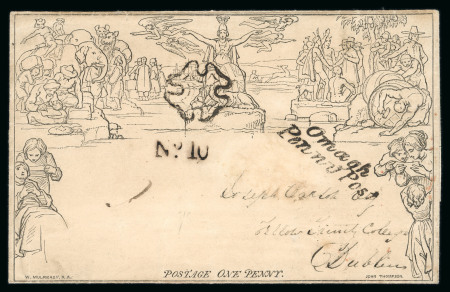 Nº 10
Omagh
Penny Post
Joseph
Fellow Trinity College
Dublin
POSTAGE ONE PENNY.
W. MULREADY, R.A.
JOHN THOMPSON